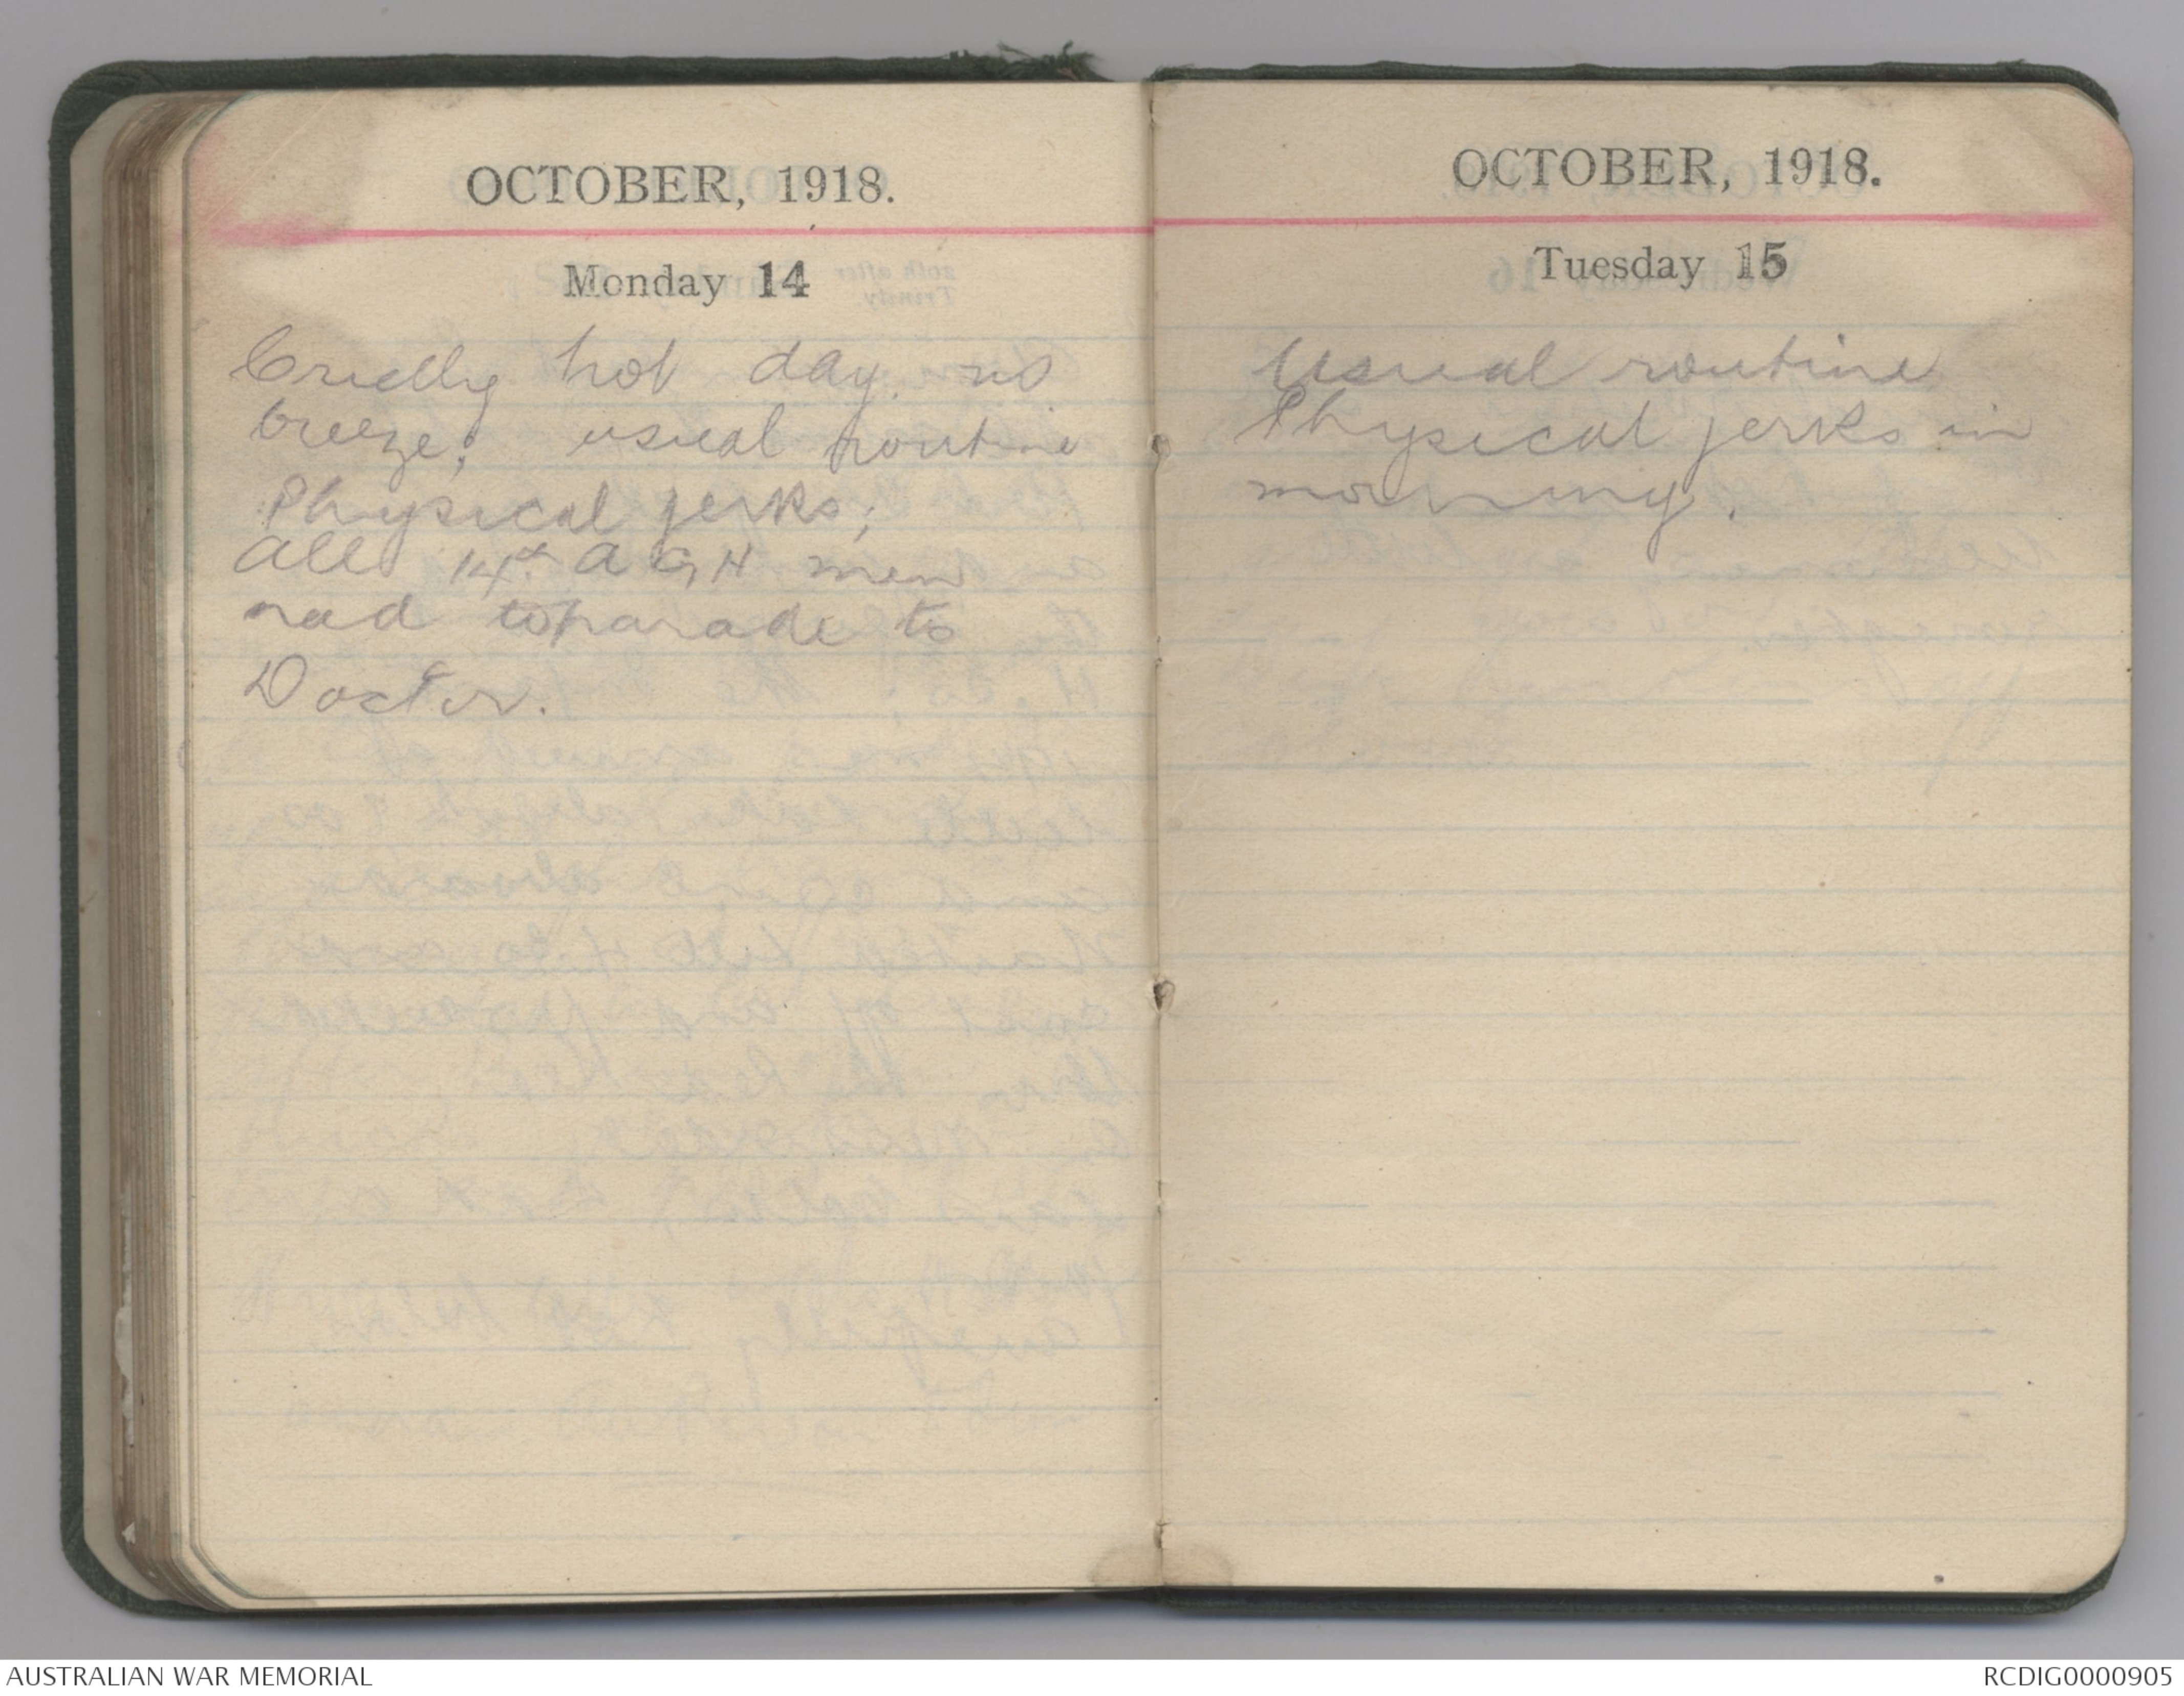 OCTOBER, 1918.
Monday 14
Cruelly hot day. no
breeze; usual routine
Physical jerks;
All 14th A G H men
had to parade to
Doctor.
OCTOBER, 1918.
Tuesday 15
Usual routine
Physical jerks in
morning.
AUSTRALIAN WAR MEMORIAL
RCDIG0000905